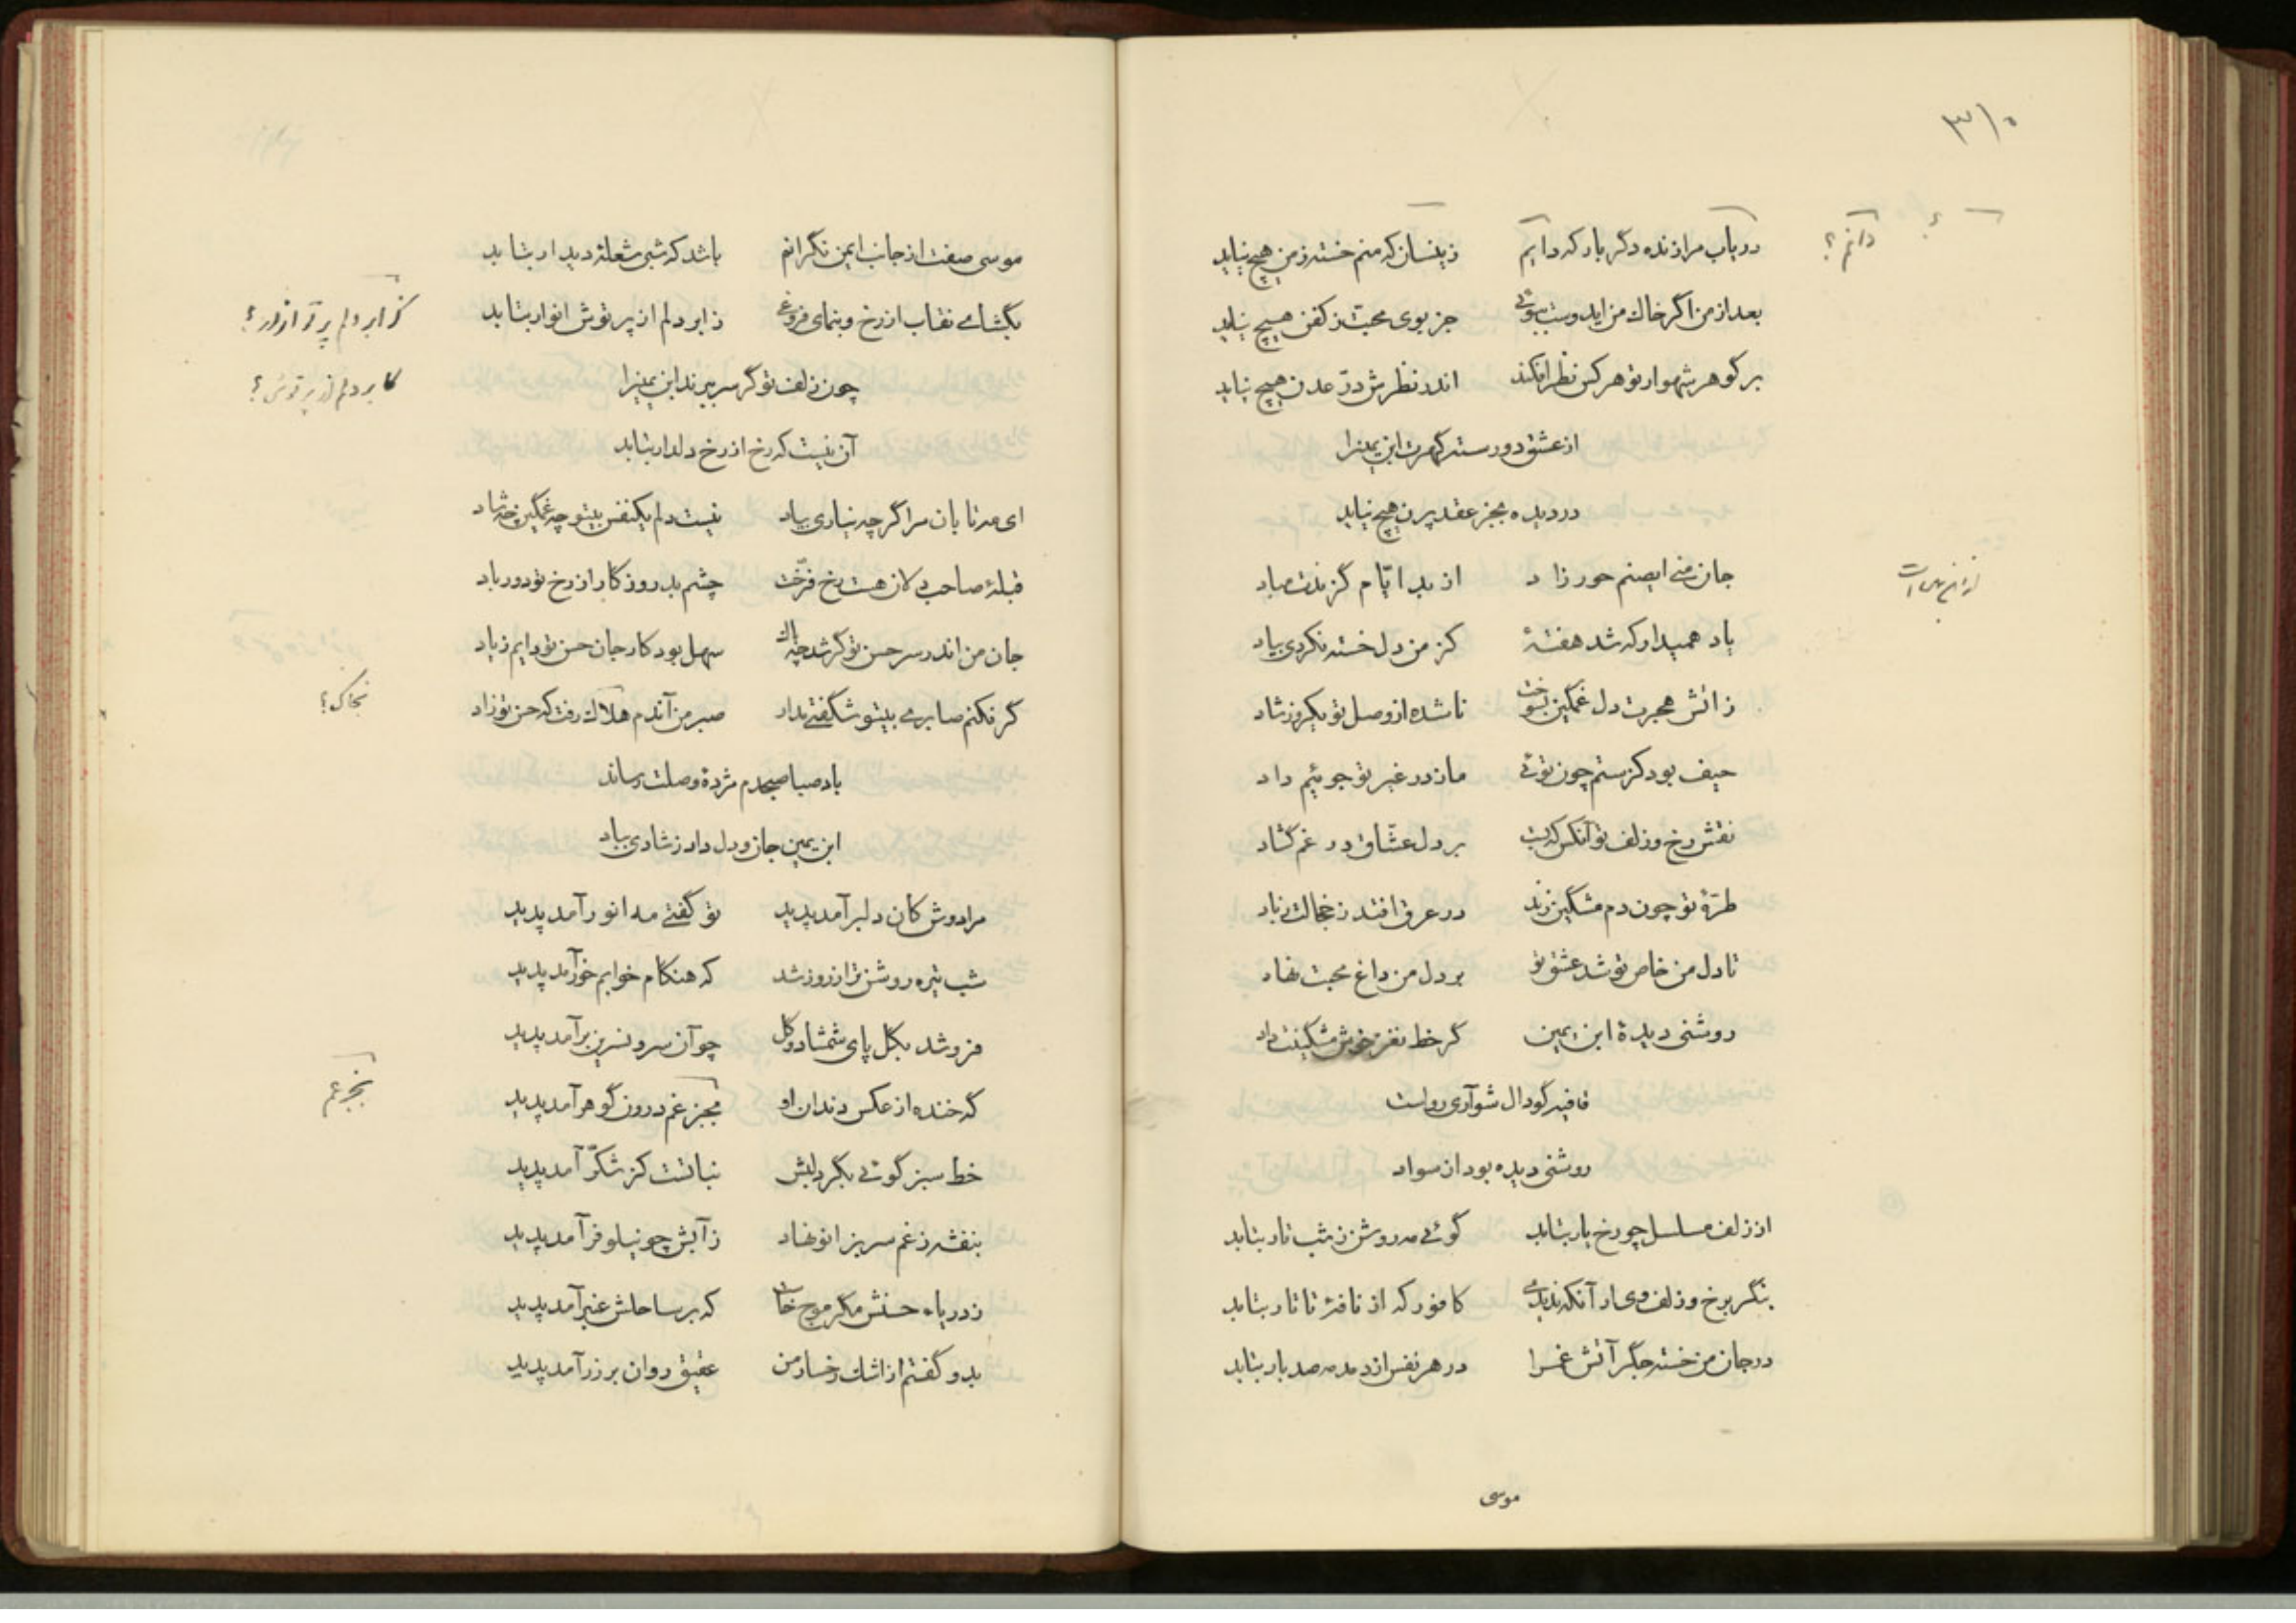 ۳۱۰
دریاب مرا زنده دگر بار که دایم    زینسان که منم خسته ز من هیچ نیاید
دانم؟
بعد از من اگر خاک من ایدوست ببوئی    جز بوی محبت ز کفن هیچ نیاید
بر گوهر شهوار تو هر کس نظر افکند    اندر نظرش درّ عدن هیچ نیاید
از عشق دو رسته گهرت ابن یمینرا
در دیده بجز عقد پرن هیچ نیاید
جان منی ایصنم حورزاد    از بد ایّام گزندت مباد
یاد همیدار که شد هفتهٔ    کز من دل خسته نکردی بیاد
زاتش هجرت دل غمگین بسوخت    ناشده از وصل تو یکروز شاد
حیف بود کز ستم چون توئی    ماند در غیر تو جوئیم داد
نقش رخ و زلف تو آنکس که بست    بر دل عشّاق در غم گشاد
طرّهٔ تو چون دم مشگین زند    در عرق افتد ز خجالت باد
تا دل من خاص تو شد عشق تو    بر دل من داغ محبت نهاد
روشنی دیدهٔ ابن یمین    گر خط نغز خوش مشگینت داد
قافیه گو دال شو آری رواست
روشنی دیده بود از سواد
از زلف مسلسل چو رخ یار بتابد    گوئی مه روشن ز شب تار بتابد
بنگر برخ و زلف وی ار آنکه ندیدی    کافور که از نافهٔ تاتار بتابد
در جان من خسته جگر آتش غمرا    در هر نفس از دمدمه صد بار بتابد
موسی
موسی صفت از جانب ایمن نگرانم    باشد که شبی شعلهٔ دیدار بتابد
بگشای نقاب از رخ و بنمای فروغی    ز ابر دلم از پرتوش انوار بتابد
کز ابر دلم پرتو انوار؟
چون زلف تو گر سر ببرند ابن یمینرا
کابر دلم از پرتوش؟
آن نیست که رخ از رخ دلدار بتابد
ای مه تابان مرا گر چه نیاری بیاد    نیست دلم یکنفس بیتو چه غمگین چه شاد
قبلهٔ صاحب دلان هست رخ فرّخت    چشم بد روزگار از رخ تو دور باد
جان من اندر سر حسن تو گر شد چه باک    سهل بود کار جان حسن تو دایم زیاد
گر نکنم صابری بیتو شگفتی مدار    صبر من آندم هلاک رفت که حسن تو زاد
بخاک؟
باد صبا صبحدم مژدهٔ وصلت رساند
ابن یمین جان و دل داد ز شادی بباد
مرا دوش کان دلبر آمد پدید    تو گفتی مه انور آمد پدید
شب تیره روشن تر از روز شد    که هنگام خوابم خور آمد پدید
فرو شد بگل پای شمشاد و گل    چو آن سرو نسرین بر آمد پدید
گه خنده از عکس دندان او    بجز غم درون گوهر آمد پدید
خط سبز گوئی بگرد لبش    نباتست کز شکّر آمد پدید
بنفشه ز غم سر بزانو نهاد    ز آبش چو نیلوفر آمد پدید
ز دریاء حسنش مگر موج خاست    که بر ساحلش عنبر آمد پدید
بدو گفتم از اشک رخسار من    عقیق روان بر زر آمد پدید